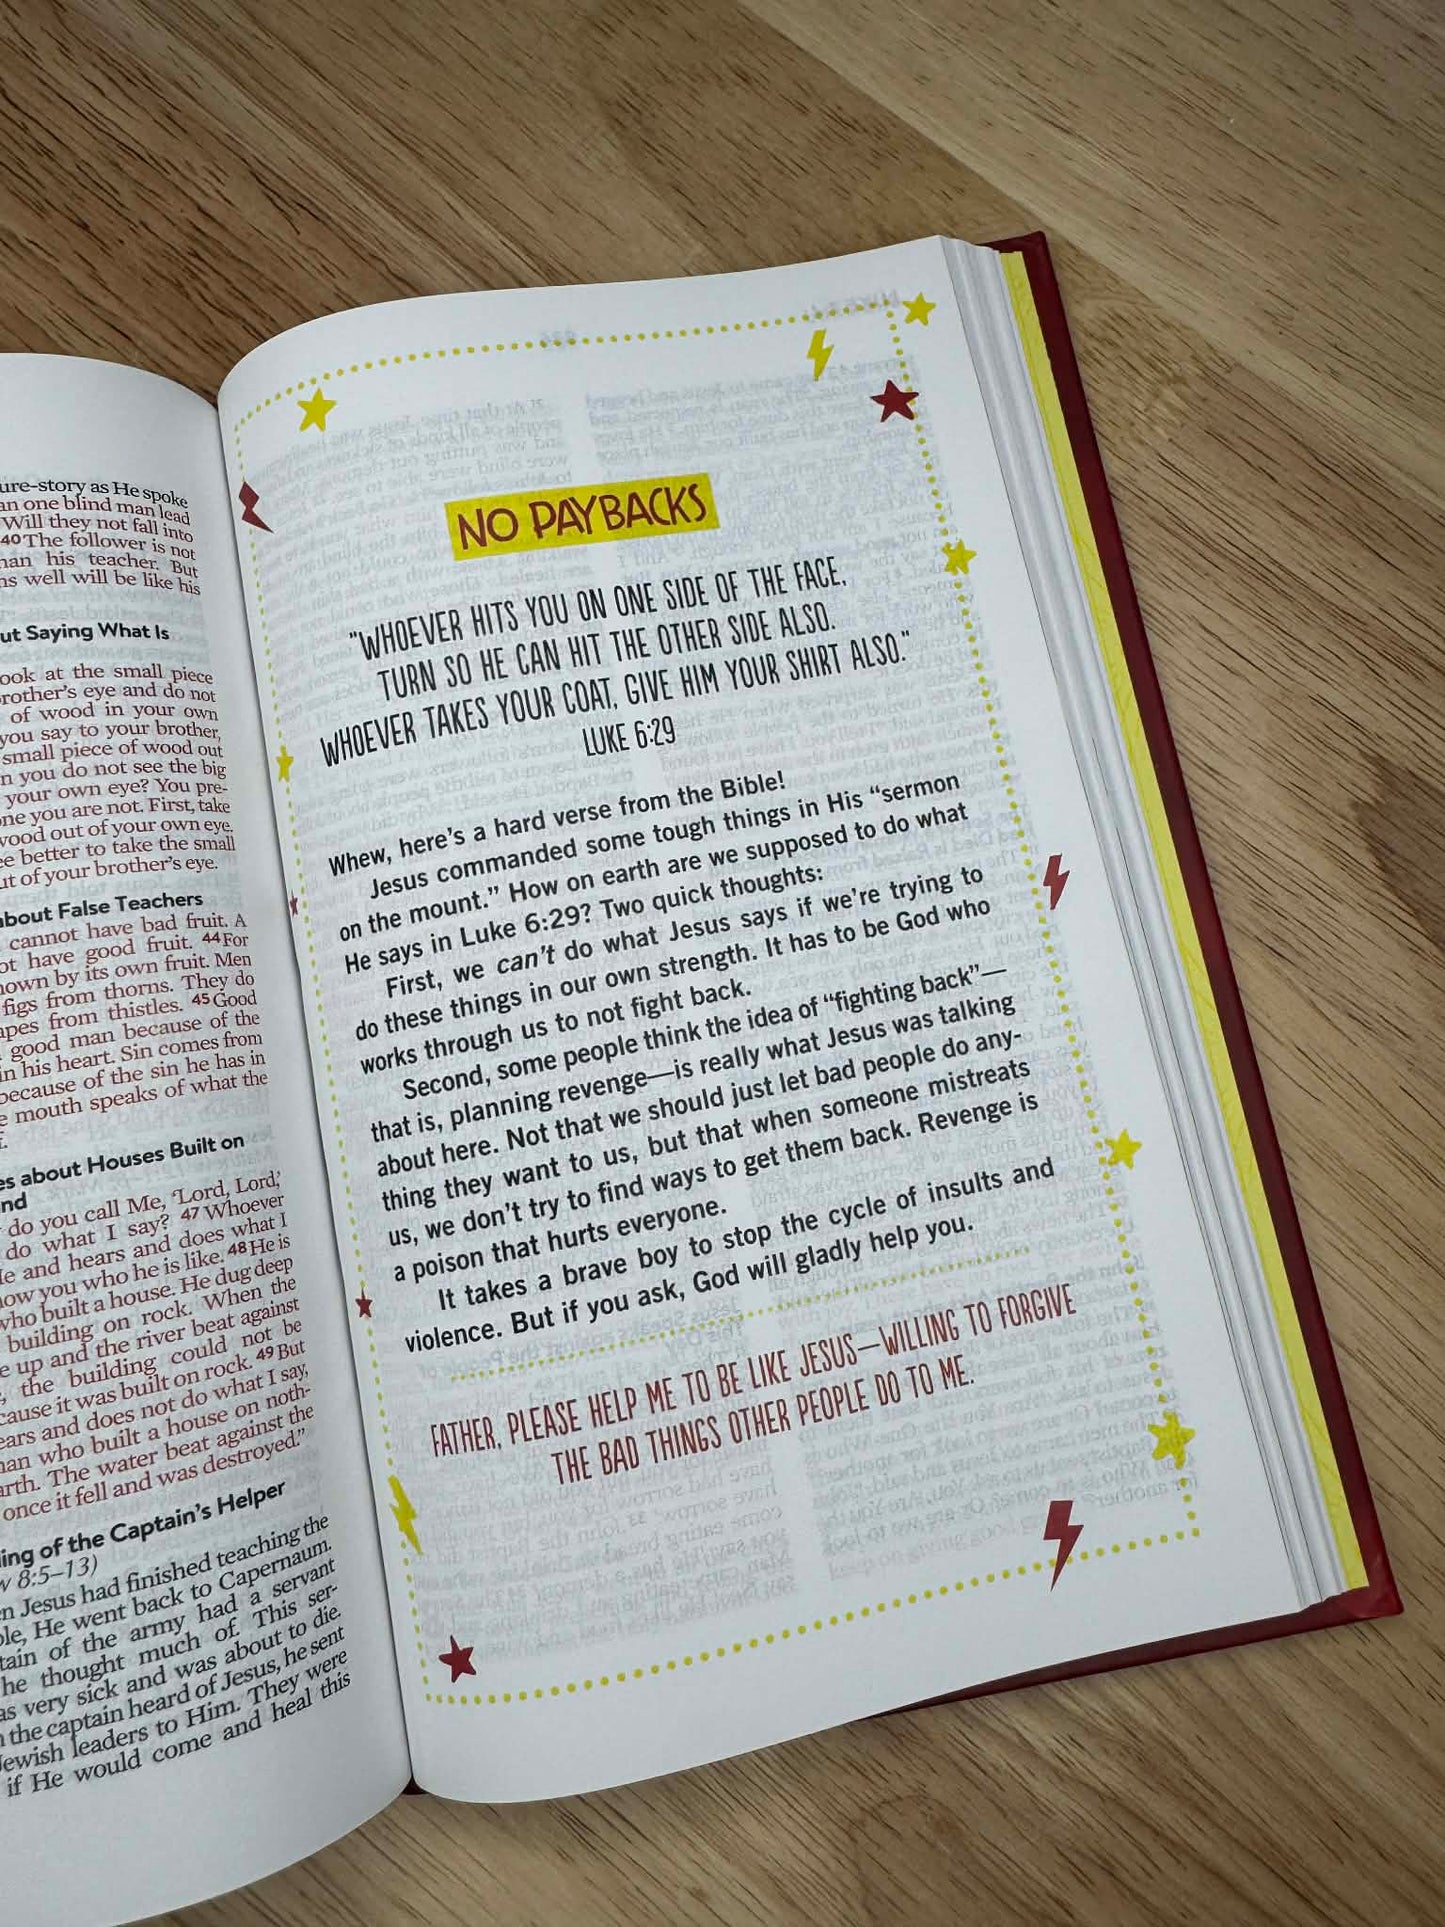 ure-story as He spoke
an one blind man lead
Will they not fall into
40 The follower is not
han his teacher. But
ns well will be like his
ut Saying What Is
ook at the small piece
rother's eye and do not
of wood in your own
you say to your brother,
small piece of wood out
n you do not see the big
your own eye? You pre-
ne you are not. First, take
wood out of your own eye.
ee better to take the small
ut of your brother's eye.
about False Teachers
cannot have bad fruit. A
ot have good fruit. 44 For
nown by its own fruit. Men
figs from thorns. They do
apes from thistles. 45 Good
good man because of the
in his heart. Sin comes from
because of the sin he has in
e mouth speaks of what the
f.
es about Houses Built on
nd
do you call Me, 'Lord, Lord,'
do what I say? 47 Whoever
Me and hears and does what I
how you who he is like. 48 He is
who built a house. He dug deep
building on rock. When the
e up and the river beat against
, the building could not be
cause it was built on rock. 49 But
ears and does not do what I say,
man who built a house on noth-
arth. The water beat against the
once it fell and was destroyed."
ling of the Captain's Helper
w 8:5–13)
en Jesus had finished teaching the
ple, He went back to Capernaum.
tain of the army had a servant
he thought much of. This ser-
as very sick and was about to die.
n the captain heard of Jesus, he sent
Jewish leaders to Him. They were
if He would come and heal this
NO PAYBACKS
"WHOEVER HITS YOU ON ONE SIDE OF THE FACE,
TURN SO HE CAN HIT THE OTHER SIDE ALSO.
WHOEVER TAKES YOUR COAT, GIVE HIM YOUR SHIRT ALSO."
LUKE 6:29
Whew, here's a hard verse from the Bible!
Jesus commanded some tough things in His "sermon
on the mount." How on earth are we supposed to do what
He says in Luke 6:29? Two quick thoughts:
First, we can't do what Jesus says if we're trying to
do these things in our own strength. It has to be God who
works through us to not fight back.
Second, some people think the idea of "fighting back"—
that is, planning revenge—is really what Jesus was talking
about here. Not that we should just let bad people do any-
thing they want to us, but that when someone mistreats
us, we don't try to find ways to get them back. Revenge is
a poison that hurts everyone.
It takes a brave boy to stop the cycle of insults and
violence. But if you ask, God will gladly help you.
FATHER, PLEASE HELP ME TO BE LIKE JESUS—WILLING TO FORGIVE
THE BAD THINGS OTHER PEOPLE DO TO ME.